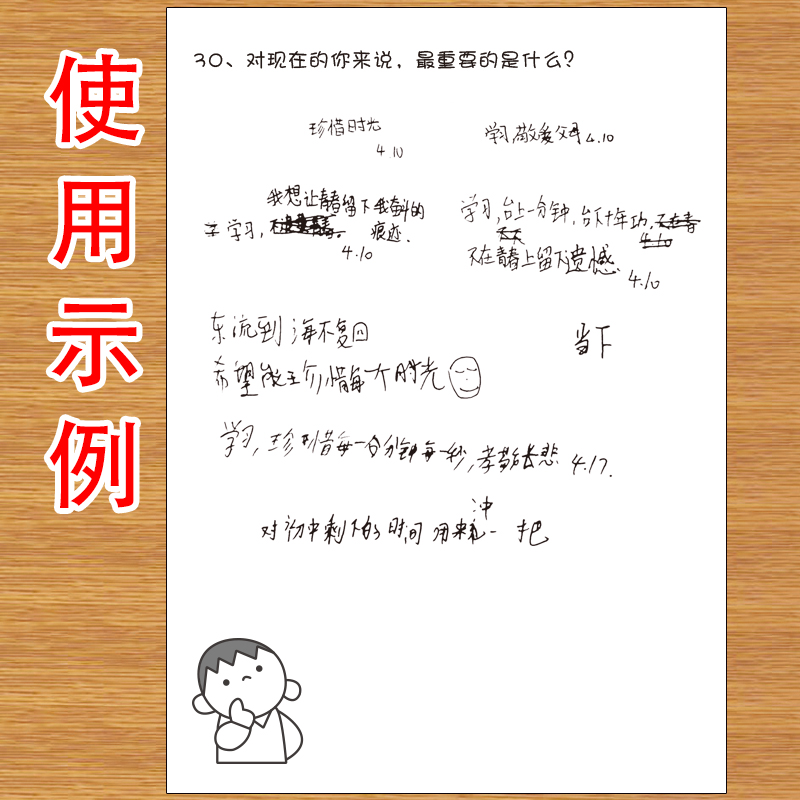 使用示例
30、对现在的你来说，最重要的是什么？
珍惜时光
4.10
学习,敬爱父母4.10
我想让青春留下我奋斗的
学习，
痕迹.
4.10
学习，台上一分钟，台下十年功，不在青
4.10
不在青春上留下遗憾
4.10
东流到海不复回
当下
希望能珍惜每个时光
学习，珍惜每一分钟每一秒，孝敬长辈 4.17.
冲
对初中剩下的时间 用来 一 把